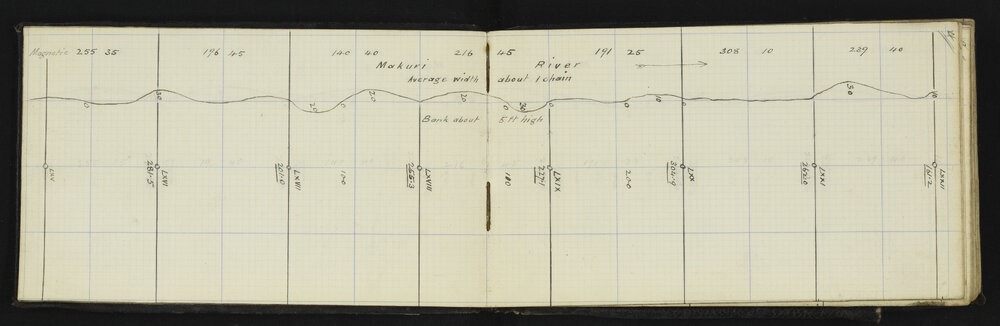 Magnetic 255 35 196 45 140 40 216 45 191 25 308 10 239 40
Makuri River
Average width about 1 chain
0 30 20 0 20 20 0 30 0 0 10 0 30 10
Bank about 5 ft high
LXV LXVI LXVII LXVIII LXIX LXX LXXI LXXII
281.5 201.0 100 255.3 100 227.1 200 304.9 262.0 161.2